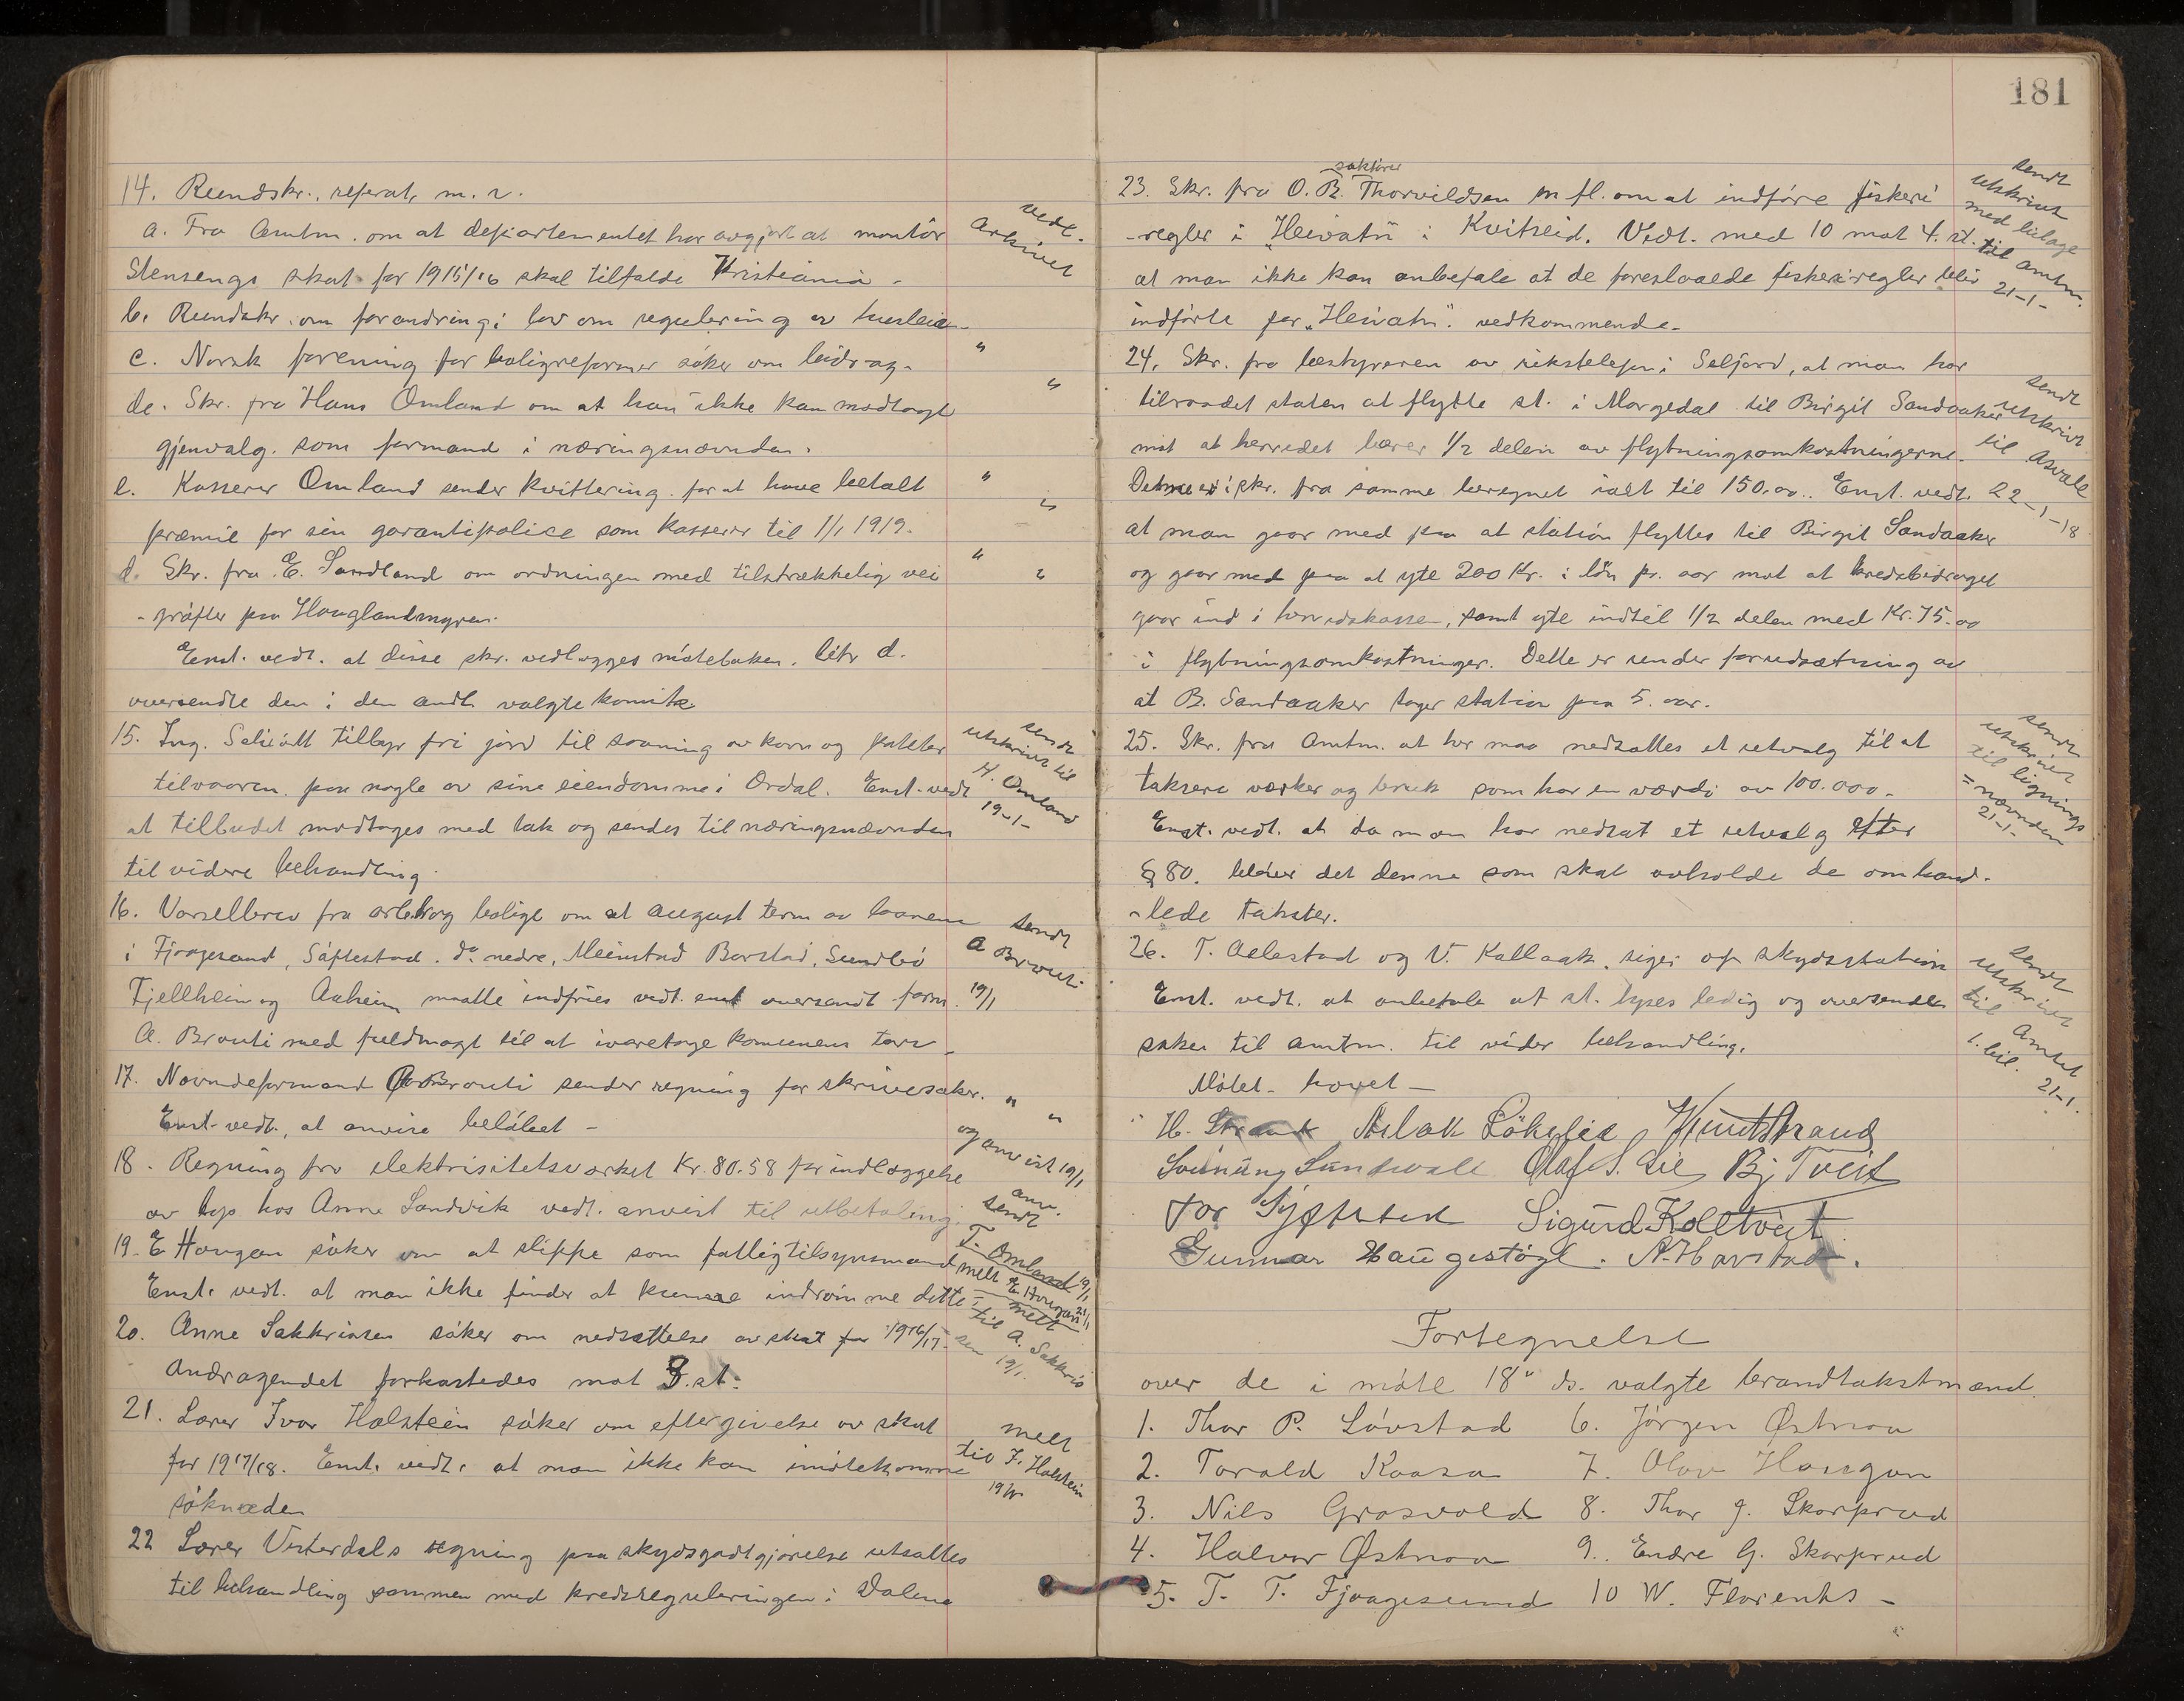 14. Rundskr., referat, m. v.
a. Fra Amtm. om at departementet har avgjort at montör
Stensengs skat for 1915/16 skal tilfalde Kristiania -
b. Rundskr. om forandring i lov om regulering av husleie -
c. Norsk forening for boligreformer söker om bidrag -
de. Skr. fra Hans Omland om at han ikke kan modtage
gjenvalg som formand i næringsnævnden.
e. Kasserer Omland sender kvittering for at have betalt
præmie for sin garantipolice som kasserer til 1/1 1919.
d. Skr. fra E. Sandland om ordningen med tilstrækkelig vei
- gröfter paa Hauglandmyren.
Enst. vedt. at disse skr. vedlægges möteboken. litr d.
oversendte den i den andl. valgte komite
vedl.
Arkivet
15. Ing. tilbyr fri jord til saaning av korn og poteter
tilvaaren paa nogle av sine eiendomme i Ordal. Enst. vedt
at tilbudet modtages med tak og sendes til næringsnævnden
til videre behandling.
sendt
utskrivt til
H. Omland
19-1-
16. Varselbrev fra arbr. og bolig. om at august term av laanene
i Fjaagesund, Söftestad. do nedre, Meinstad Barstad, Sundbö
Fjellheim og Aaheim maatte indfries vedt. enst oversendt form.
A. Brauti med fuldmagt til at ivareta komunens tarv -
sendt
A Brauti
19/1
17. Nævndeformand Brauti sender regning for skrivesaker.
Enst. vedt., at anvise belöbet -
" "
og anvist 19/1
18. Regning fra elektrisitetsverket Kr. 80.58 for indlæggelse
av lys hos Anne Sandvik vedt. anvist til utbetaling.
anv.
sendt
T. Omland 19/1
19. E Haugan söker om at slippe som fattigtilsynsmand
Enst. vedt. at man ikke finder at kunne indrömme dette
melt E. Haugan 21/1
20. Anne Sakkrisen söker om nedsættelse av skat for 1916/17 -
Andragendet forkastedes mot 3. st.
melt
til A. Sakkris
sen 19/1.
21. Lærer Ivar Holstein söker om eftergivelse av skat
for 1917/18. Enst. vedt. at man ikke kan imötekomme
söknaden
melt
til I. Holstein
22 Lærer Vesterdals regning paa skydsgodtgjörelse utsattes
til behandling sammen med kredsreguleringen i Dalane
181
sakförer
23. Skr. fra O. B. Thorvildsen m fl. om at indföre fiskeri
- regler i "Heivatn" i Kvitseid. Vedt. med 10 mot 4. st.
at man ikke kan anbefale at de foreslaaede fiskeriregler blir
indförte for "Heivatn" vedkommende -
sendt
utskrivt
med bilage
til Amtm.
21-1-
24. Skr. fra bestyreren av rikstelefon i Seljord, at man har
tilraadet staten at flytte st. i Morgedal til Birgit Sandaaker
mot at herredet bærer 1/2 delen av flytningsomkostningerne.
Denne er i skr. fra samme beregnet ialt til 150.00.. Enst. vedt.
at man gaar med paa at station flyttes til Birgit Sandaaker
og gaar med paa at yte 200 Kr. i lön pr. aar mot at kredsbidraget
gaar ind i herredskassen, samt yte indtil 1/2 delen med Kr. 75.00
i flytningsomkostninger. Dette er under forudsætning av
at B. Sandaaker tager station paa 5. aar.
sendt
utskrivt
til
22-1-18
25. Skr. fra Amtm. at her maa nedsættes et utvalg til at
taksere værker og bruk som har en værdi av 100.000 -
Enst. vedt. at da man har nedsat et utvalg efter
§ 80. blever det denne som skal avholde de omhand-
- lede takster.
sendt
utskrivt
til lignings
= nævnden
21-1-
26. T. Aelestad og V. Kallaak. siger op skydsstation
Enst. vedt. at anbefale at st. lyses ledig og oversender
saken til Amtm. til vider behandling.
sendt
utskrivt
til Amtet
1. bil. 21-1.
Mötet hævet -
H. Strand Aslak Lökslid Knut Strand
Sveinung Sundvall Olaf S. Lie Bj Tveit
Tor Sigurd Kolltveit
Gunnar Haugestögl. A. Harstad.
Fortegnelse
over de i möte 18" ds. valgte brandtakstmænd.
1. Thor P. Lövstad 6. Jörgen Østmoa
2. Torald Kaasa 7. Olav Haugan
3. Nils Grasvold 8. Thor J. Skarprud
4. Halvor Østmoa 9. Endre G. Skarprud
5. T. T. Fjaagesund 10 W. Florenks -